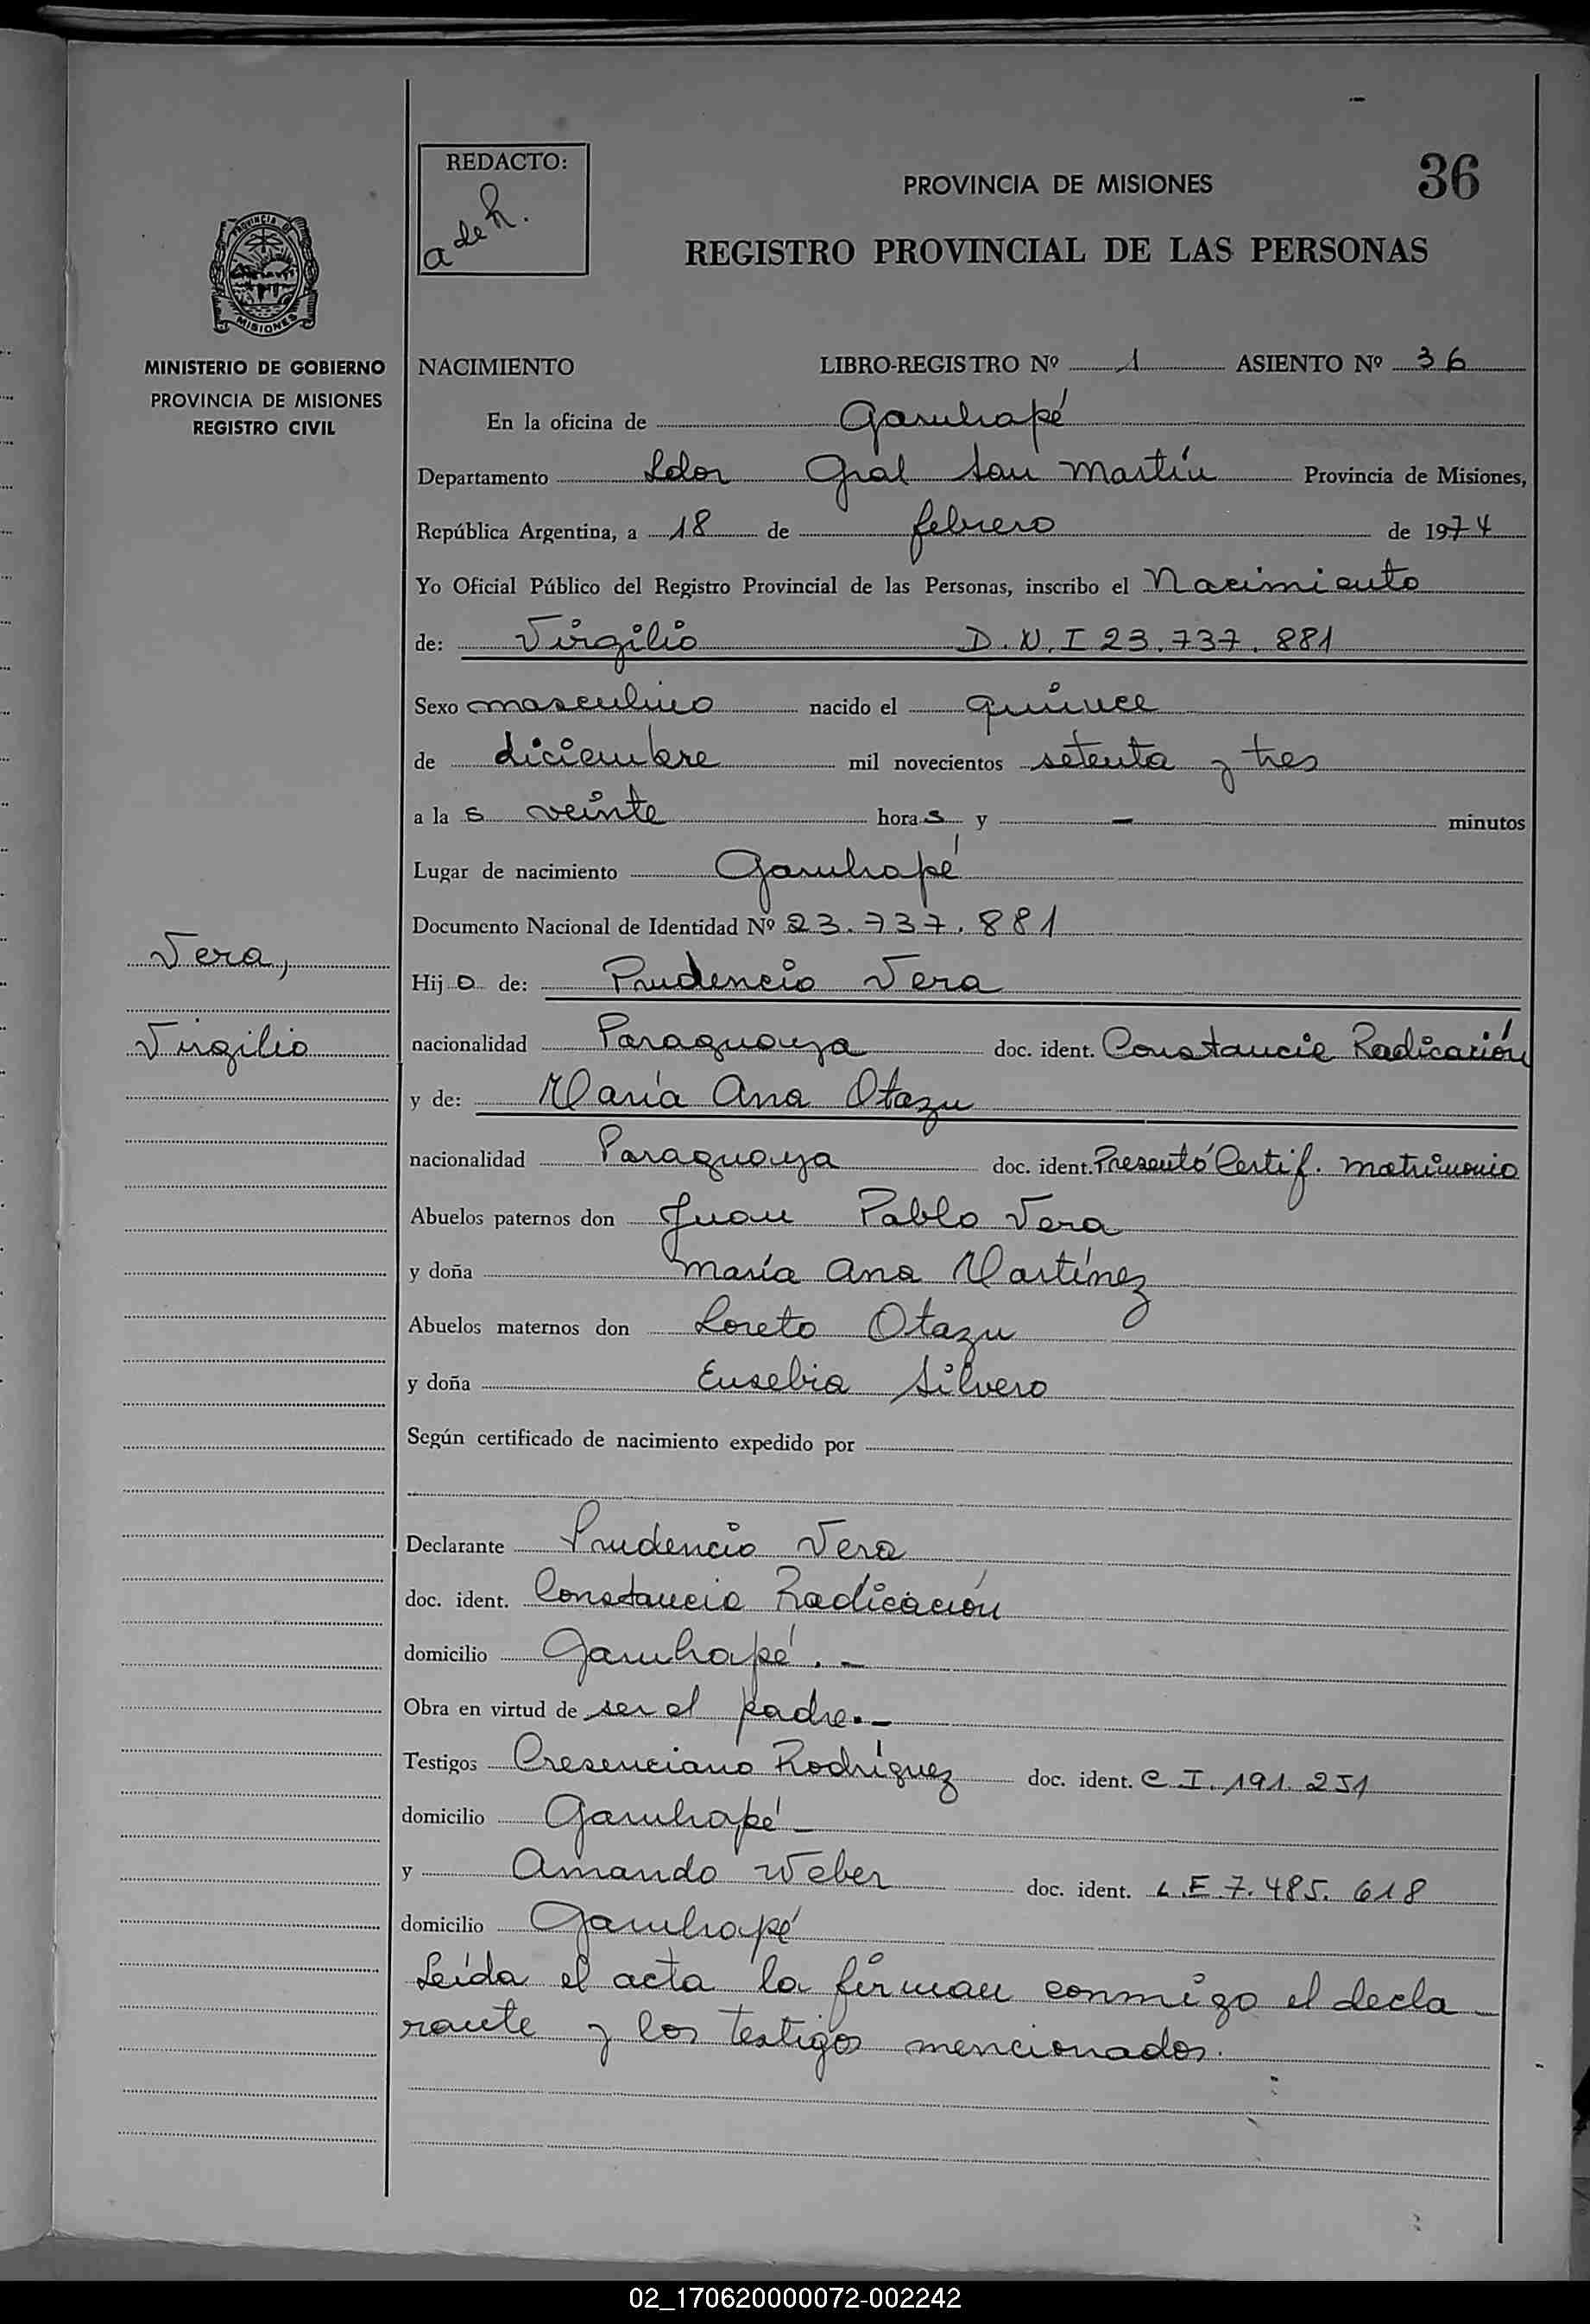 REDACTO:
a de h.
PROVINCIA DE MISIONES
36
REGISTRO PROVINCIAL DE LAS PERSONAS
PROVINCIA DE
MISIONES
MINISTERIO DE GOBIERNO
PROVINCIA DE MISIONES
REGISTRO CIVIL
NACIMIENTO LIBRO-REGISTRO Nº 1 ASIENTO Nº 36
En la oficina de Garuhapé
Departamento Ldor Gral San Martín Provincia de Misiones,
República Argentina, a 18 de febrero de 1974
Yo Oficial Público del Registro Provincial de las Personas, inscribo el Nacimiento
de: Virgilio D.N.I 23.737.881
Sexo masculino nacido el quince
de diciembre mil novecientos setenta y tres
a la s veinte hora s y - minutos
Lugar de nacimiento Garuhapé
Documento Nacional de Identidad Nº 23.737.881
Vera,
Virgilio
Hij o de: Prudencio Vera
nacionalidad Paraguaya doc. ident. Constancia Radicación
y de: María Ana Otazu
nacionalidad Paraguaya doc. ident. Presentó Certif. matrimonio
Abuelos paternos don Juan Pablo Vera
y doña maría ana Martínez
Abuelos maternos don Loreto Otazu
y doña Eusebia Silvero
Según certificado de nacimiento expedido por
Declarante Prudencio Vera
doc. ident. Constancia Radicación
domicilio Garuhapé.-
Obra en virtud de ser el padre.-
Testigos Cresenciano Rodríguez doc. ident. C I. 191.251
domicilio Garuhapé-
y Amando Weber doc. ident. L.E 7.485.618
domicilio Garuhapé
Leída el acta la firman conmigo el decla-
rante y los testigos mencionados.
02_170620000072-002242